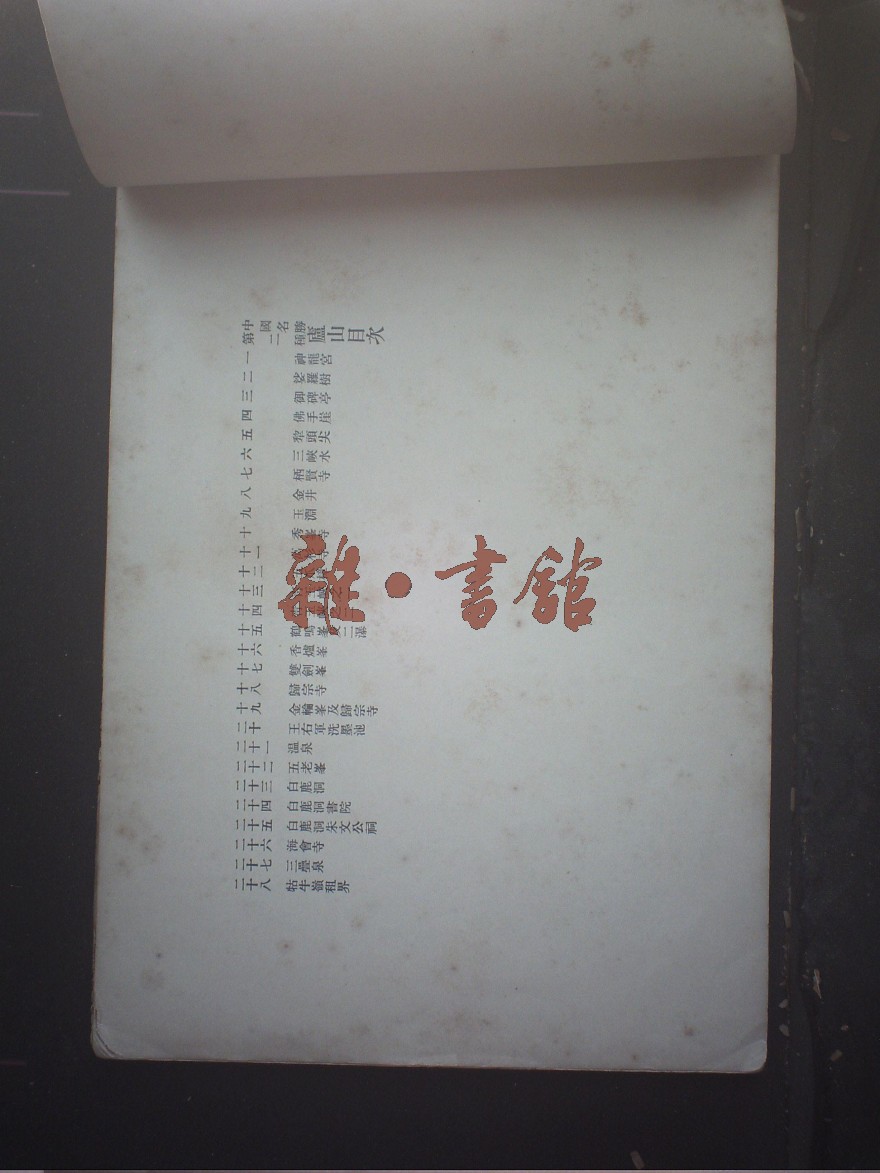 中國名勝
第二種
廬山目次
一 神龍宮
二 娑羅樹
三 御碑亭
四 佛手崖
五 犂頭尖
六 三峽水
七 栖賢寺
八 金井
九 玉淵
十 秀峯寺
十一
十二
十三
十四
十五 鶴鳴峯 二瀑
十六 香爐峯
十七 雙劍峯
十八 歸宗寺
十九 金輪峯及歸宗寺
二十 王右軍洗墨池
二十一 温泉
二十二 五老峯
二十三 白鹿洞
二十四 白鹿洞書院
二十五 白鹿洞朱文公祠
二十六 海會寺
二十七 三疊泉
二十八 牯牛嶺租界
雜·書館